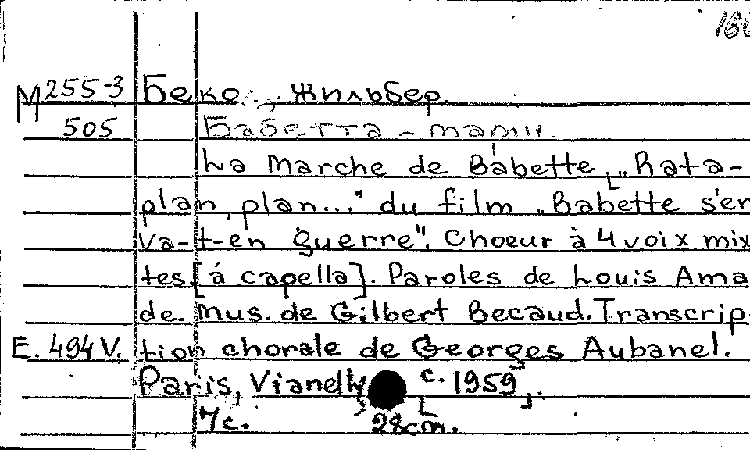 M 255-3 Беко, Жильбер.
505 Бабетта - марш.
La Marche de Babette, „Rata-
plan, plan..." du film „Babette s'en
va-t-en guerre". Choeur à 4 voix mix
tes [à capella]. Paroles de Louis Ama
de. Mus. de Gilbert Becaud. Transcrip-
E. 494 V. tion chorale de Georges Aubanel.
Paris, Vianelly [c. 1959].
7 c. 28 cm.